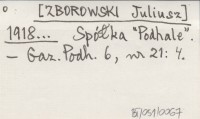 [ZBOROWSKI Juliusz]
1918... Spółka "Podhale".
— Gaz. Podh. 6, nr 21: 4.